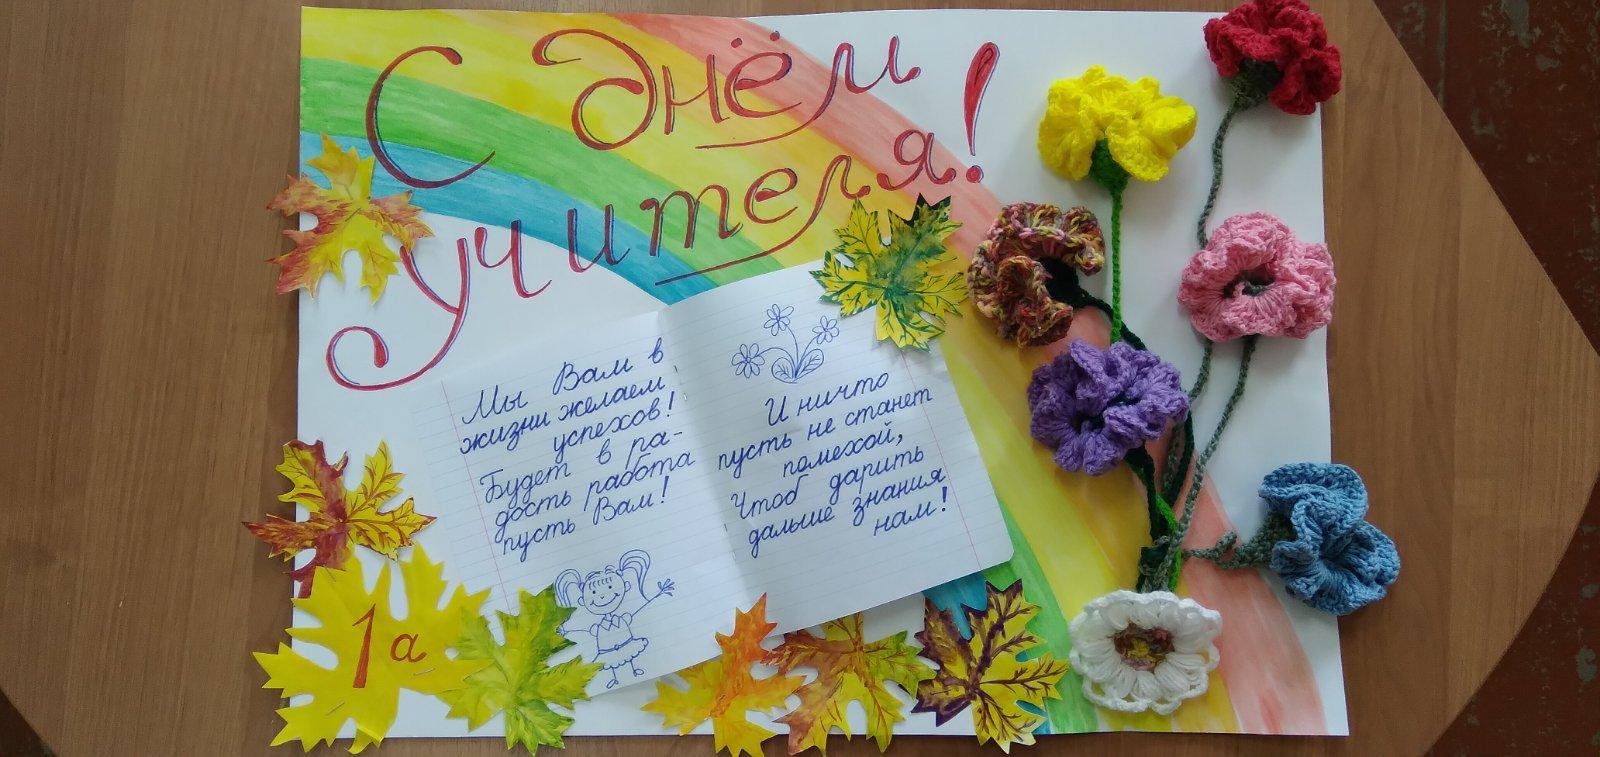 С днём
учителя!
Мы Вам в
жизни желаем
успехов!
Будет в ра-
дость работа
пусть Вам!
И ничто
пусть не станет
помехой,
Чтоб дарить
дальше знания
нам!
1а